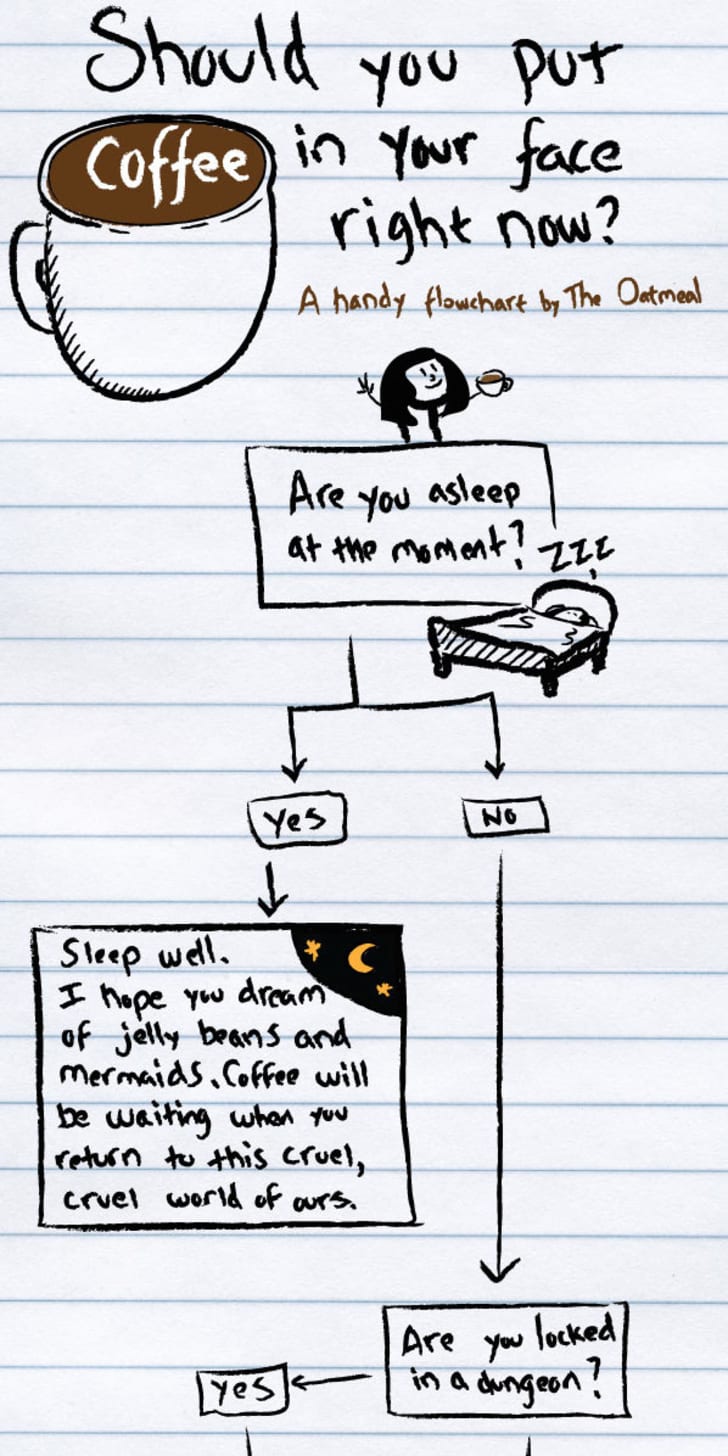 Should you put
Coffee in your face
right now?
A handy flowchart by The Oatmeal
Are you asleep
at the moment?
ZZZ
Yes
No
Sleep well.
I hope you dream
of jelly beans and
mermaids. Coffee will
be waiting when you
return to this cruel,
cruel world of ours.
Are you locked
in a dungeon?
Yes